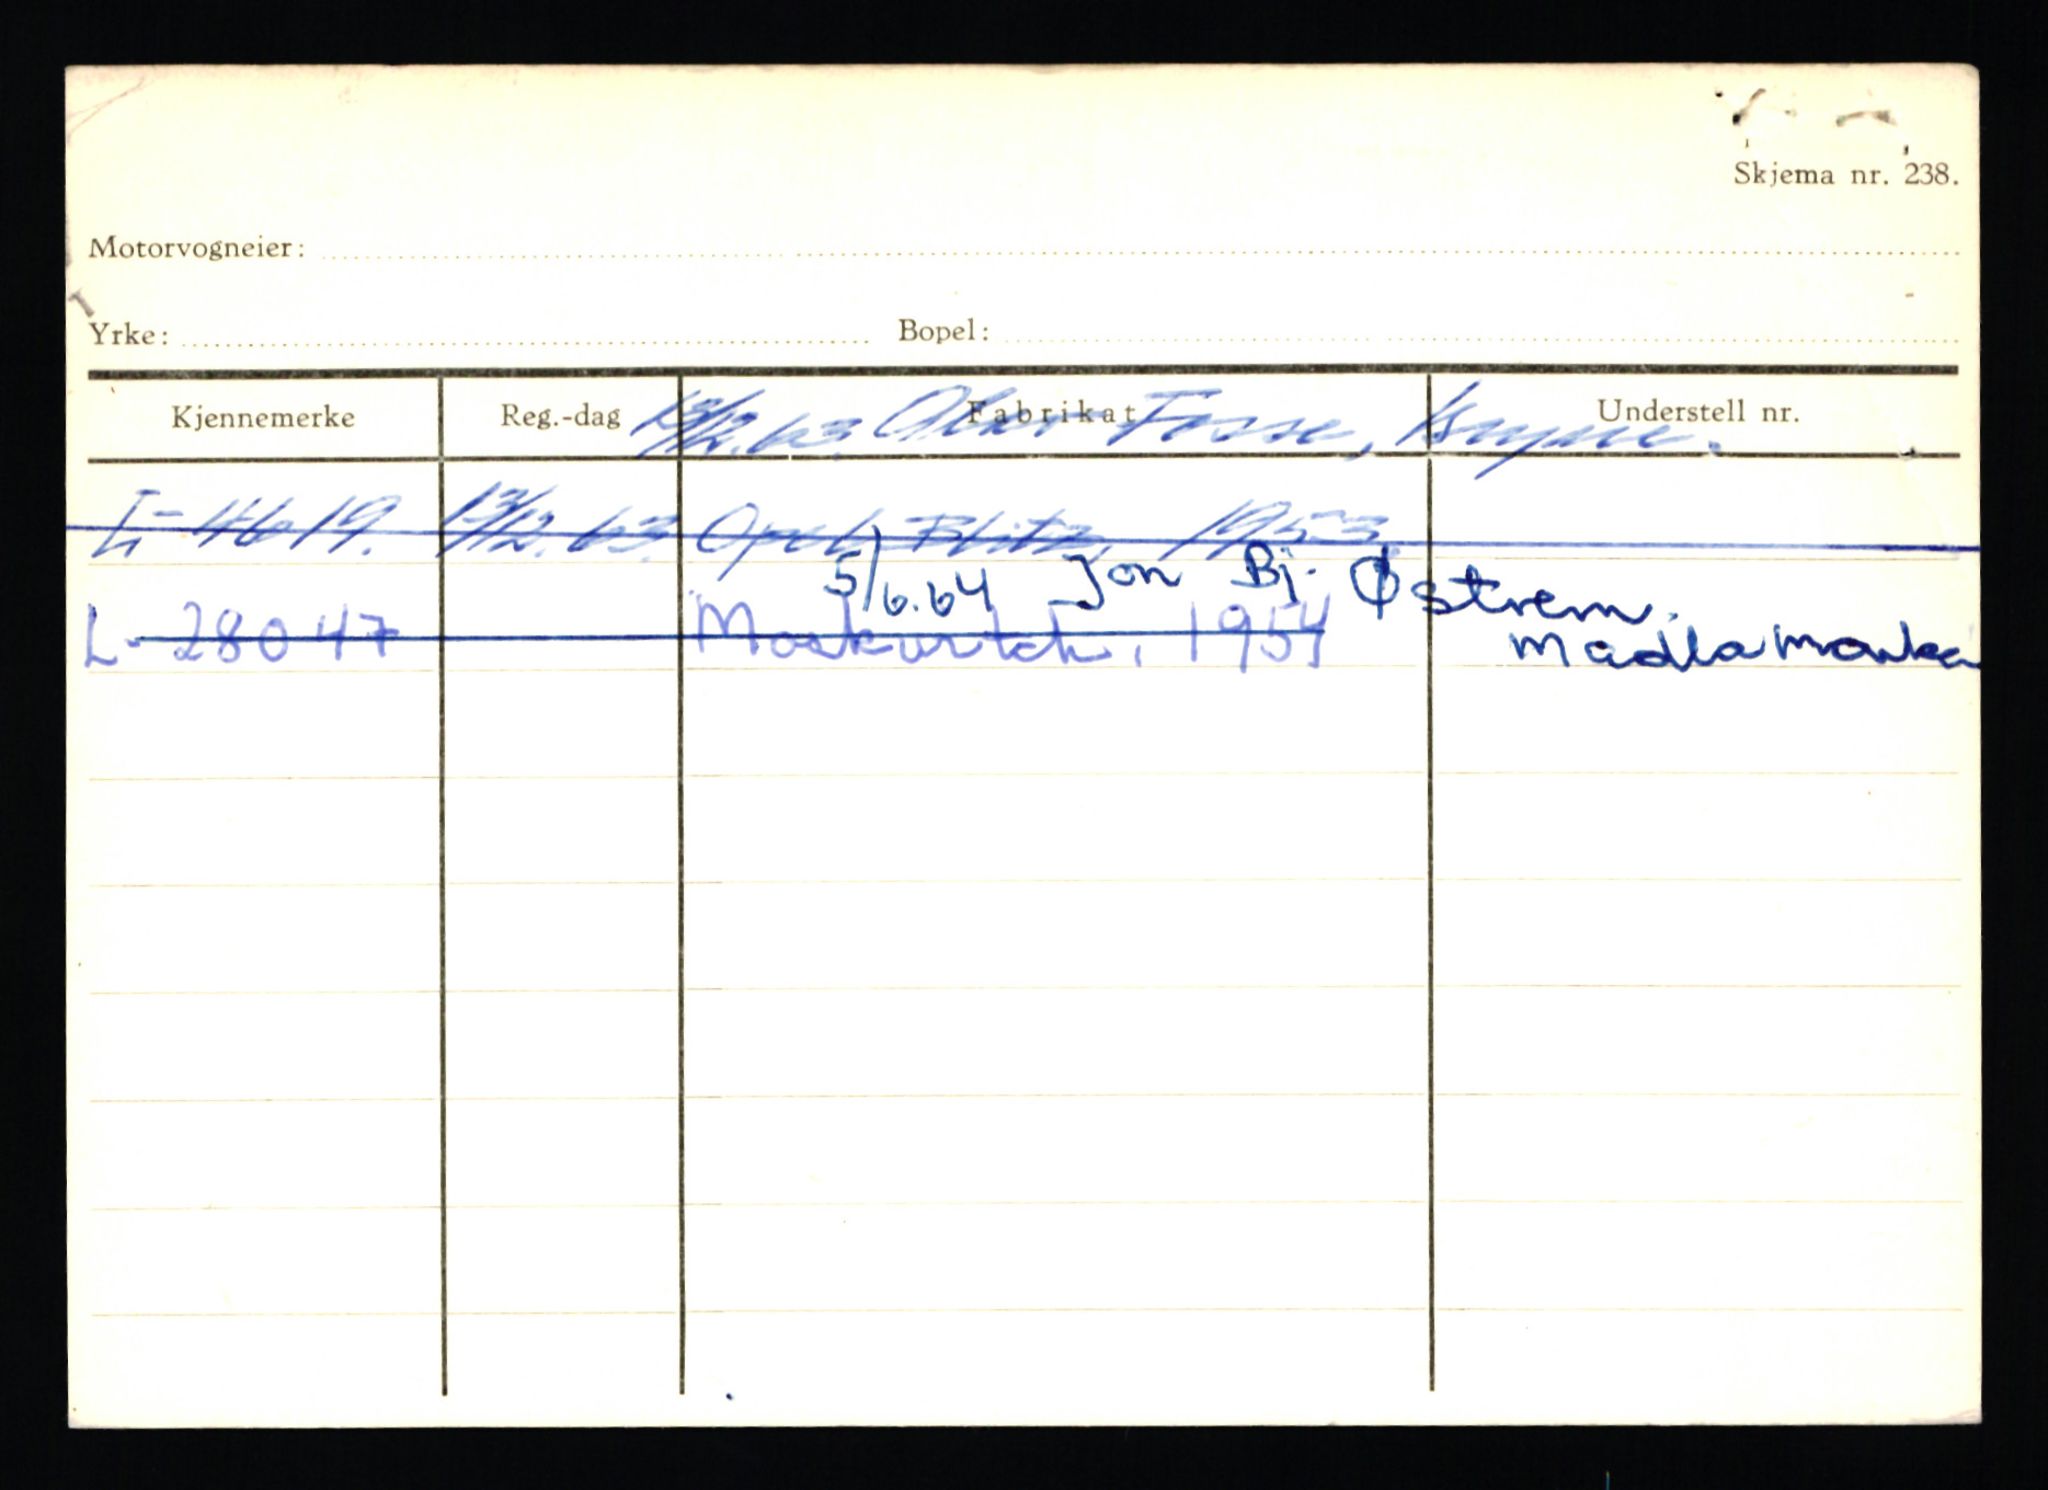 Skjema nr. 238.
Motorvogneier:
Yrke: Bopel:
Kjennemerke Reg.-dag Fabrikat Understell nr.
13/12.63. Fosse, Bryne.
L-4619. 13/12.63. Opel Blitz, 1953.
5/6.64 Jon Bj. Østrem.
L-28047 Moskvitch, 1954
Madlamarka